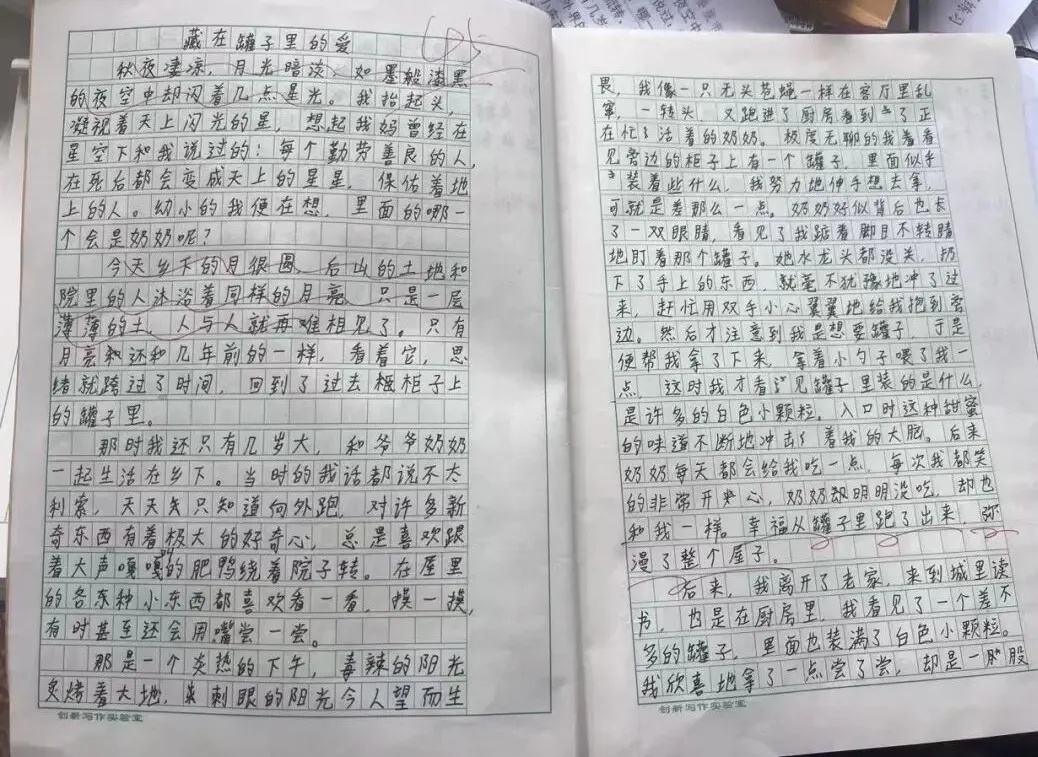 藏在罐子里的爱
秋夜凄凉,月光暗淡,如墨般漆黑
的夜空中却闪着几点星光。我抬起头,
凝视着天上闪光的星,想起我妈曾经在
星空下和我说过的:每个勤劳善良的人,
在死后都会变成天上的星星,保佑着地
上的人。幼小的我便在想,里面的哪一
个会是奶奶呢?
今天乡下的月很圆,后山的土地和
院里的人沐浴着同样的月亮,只是一层
薄薄的土,人与人就再难相见了。只有
月亮和还和几年前的一样,看着它,思
绪就跨过了时间,回到了过去柜子上
的罐子里。
那时我还只有几岁大,和爷爷奶奶
一起生活在乡下。当时的我话都说不太
利索,天天只知道向外跑,对许多新
奇东西有着极大的好奇心,总是喜欢跟
着大声嘎嘎的肥鸭绕着院子转。在屋里
的各种小东西都喜欢看一看,摸一摸,
有时甚至还会用嘴尝一尝。
那是一个炎热的下午,毒辣的阳光
炙烤着大地,刺眼的阳光令人望而生
创新写作实验室
畏,我像一只无头苍蝇一样在客厅里乱
窜,一转头,又跑进了厨房看到了正
在忙活着的奶奶。极度无聊的我看看
见旁边的柜子上有一个罐子,里面似乎
装着些什么,我努力地伸手想去拿,
可就是差那么一点。奶奶好似背后也长
了一双眼睛,看见了我踮着脚目不转睛
地盯着那个罐子。她水龙头都没关,扔
下了手上的东西,就毫不犹豫地冲了过
来,赶忙用双手小心翼翼地给我抱到旁
边。然后才注意到我是想要罐子,于是
便帮我拿了下来,拿着小勺子喂了我一
点,这时我才看见罐子里装的是什么,
是许多的白色小颗粒。入口时这种甜蜜
的味道不断地冲击着我的大脑。后来
奶奶每天都会给我吃一点,每次我都笑
的非常开心,奶奶明明没吃,却也
和我一样。幸福从罐子里跑了出来,弥
漫了整个屋子。
后来,我离开了老家,来到城里读
书,也是在厨房里,我看见了一个差不
多的罐子,里面也装满了白色小颗粒。
我欣喜地拿了一点尝了尝,却是一股
创新写作实验室